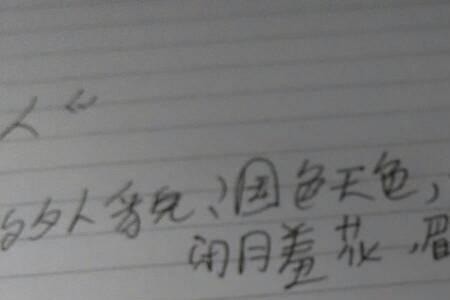 人“
的外人貌：国色天色，
闭月羞花，眉